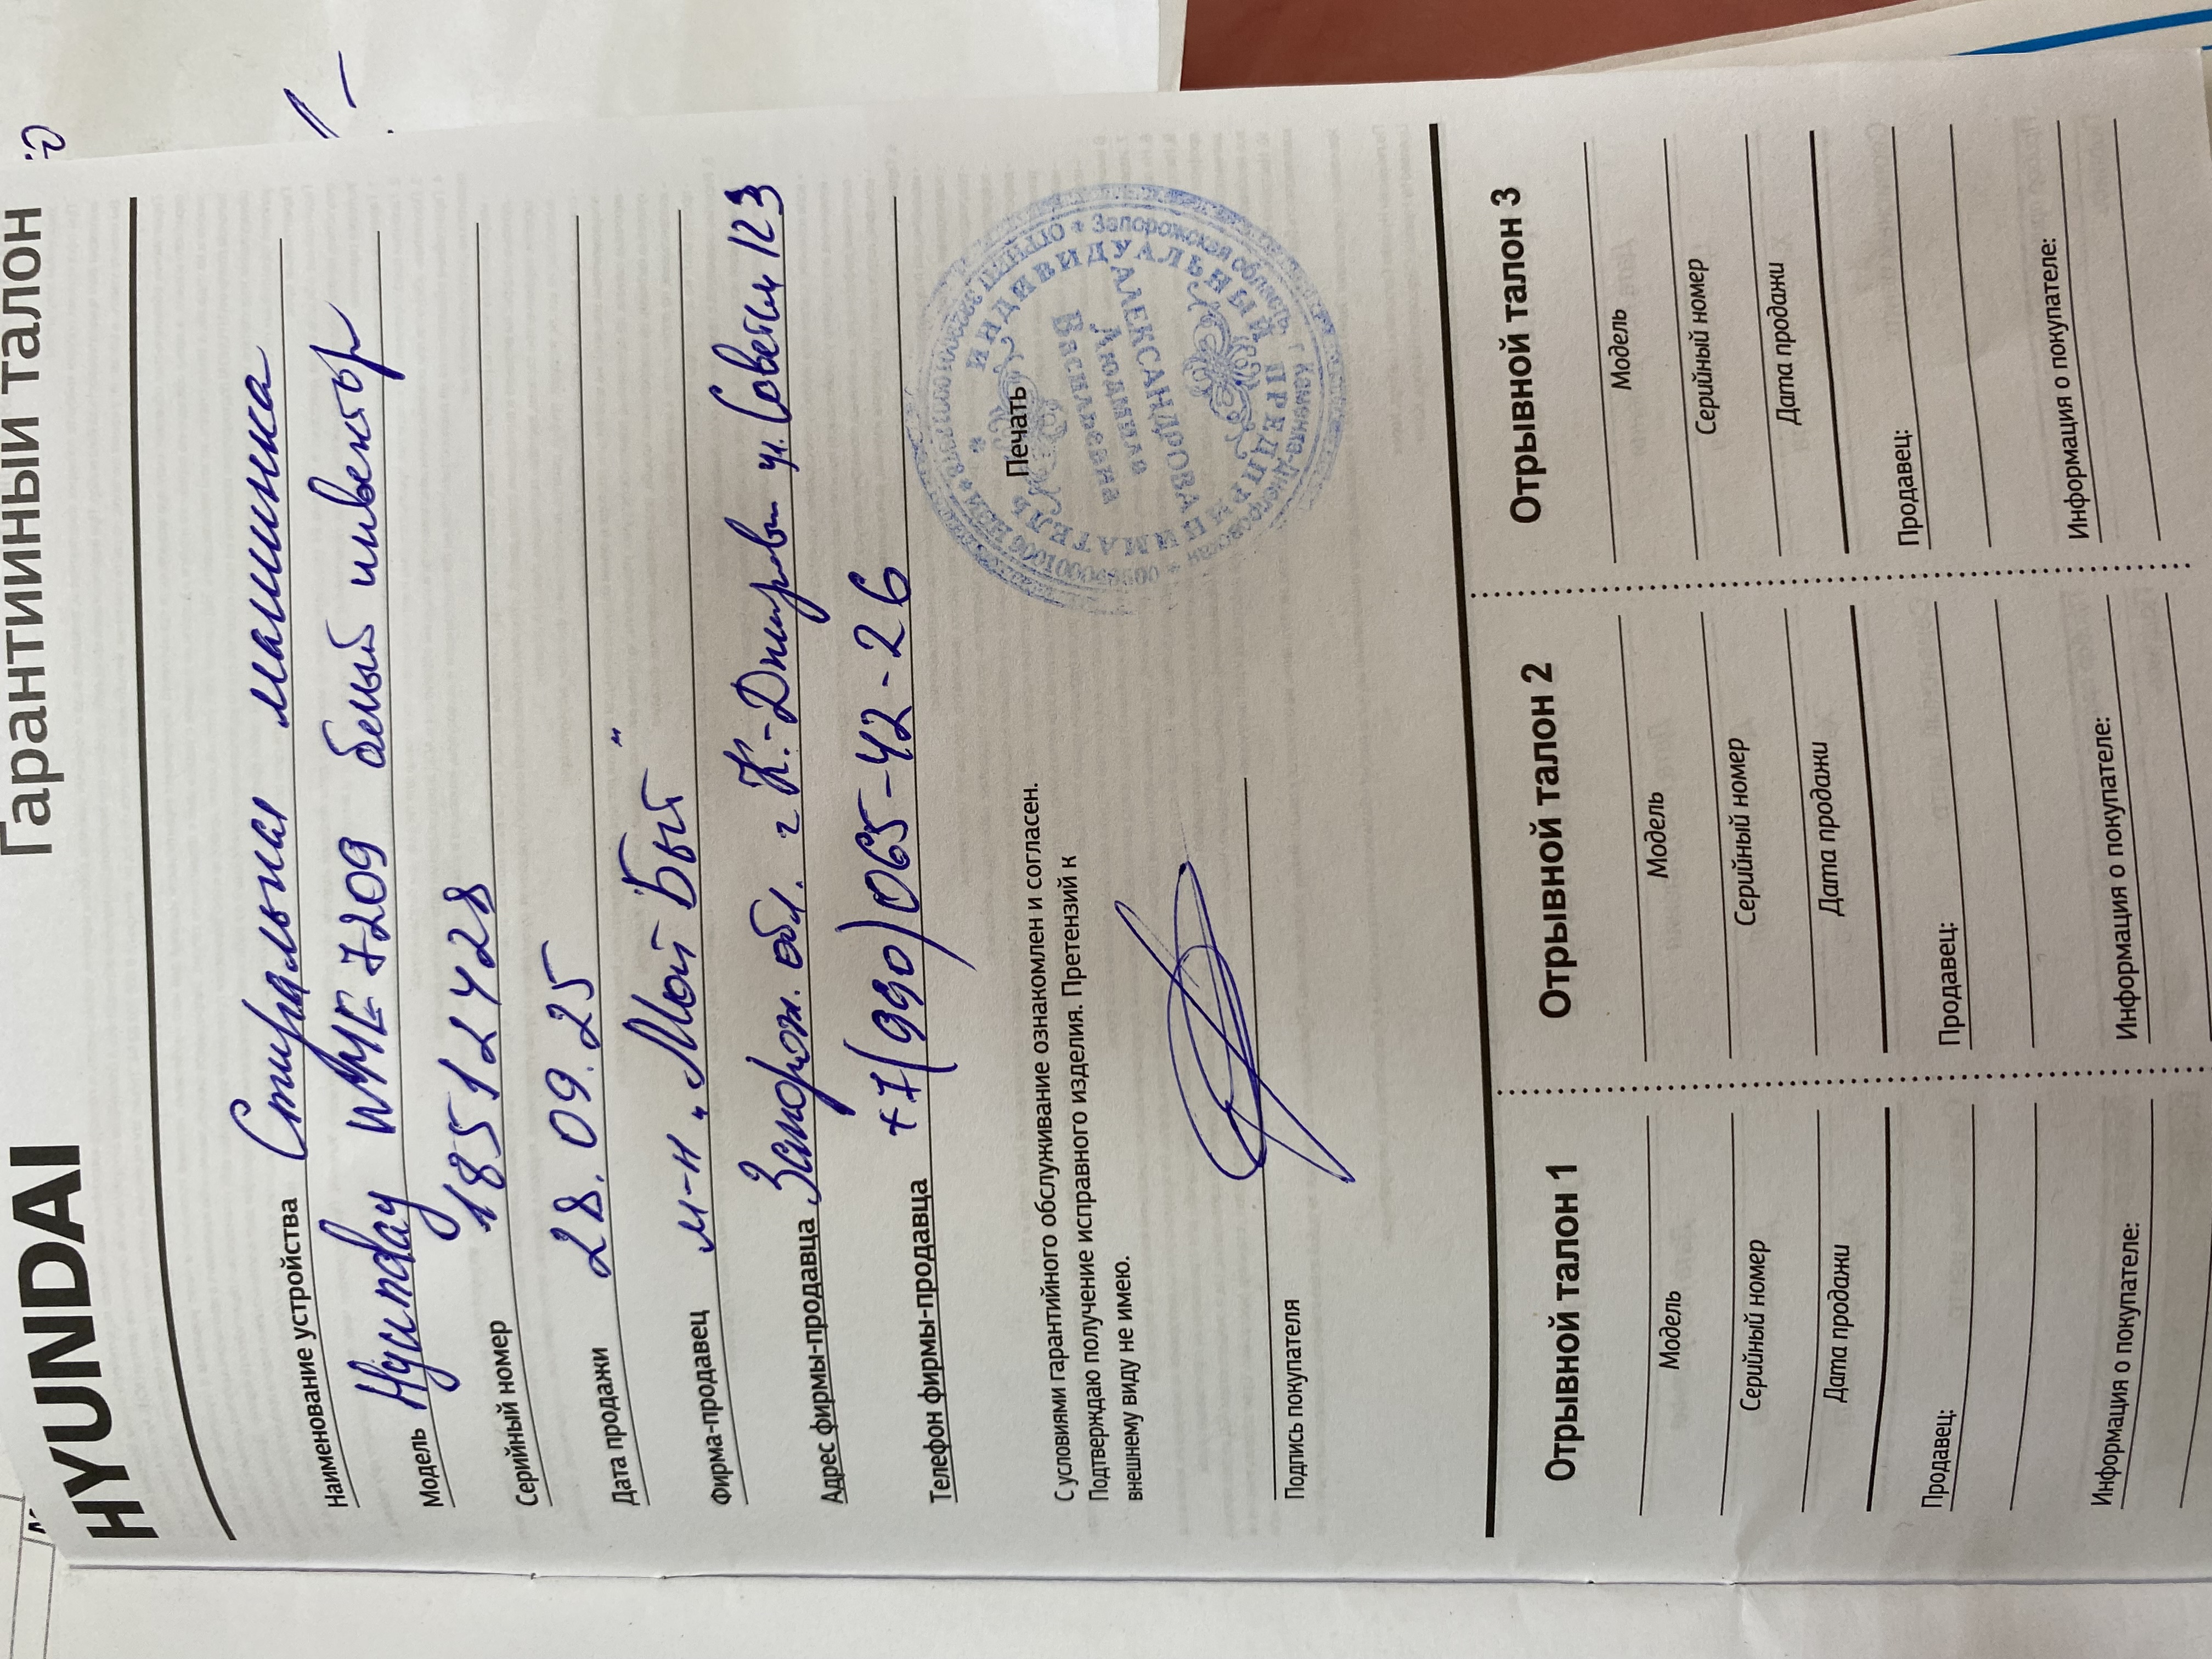 HYUNDAI Гарантийный талон
Наименование устройства Стиральная машинка
Модель Hyunday WME 7209 белый инвентор
Серийный номер 18512428
Дата продажи 28.09.25
Фирма-продавец м-н „Мой Быт"
Адрес фирмы-продавца Запорож. обл. г К.-Днепровн ул. Советск 123
Телефон фирмы-продавца +7(990)065-42-26
Печать
ИНДИВИДУАЛЬНЫЙ ПРЕДПРИНИМАТЕЛЬ
АЛЕКСАНДРОВА
Людмила
Васильевна
Запорожская область, г. Каменка-Днепровская
С условиями гарантийного обслуживание ознакомлен и согласен.
Подтверждаю получение исправного изделия. Претензий к
внешнему виду не имею.
Подпись покупателя
Отрывной талон 1
Модель
Серийный номер
Дата продажи
Продавец:
Информация о покупателе:
Отрывной талон 2
Модель
Серийный номер
Дата продажи
Продавец:
Информация о покупателе:
Отрывной талон 3
Модель
Серийный номер
Дата продажи
Продавец:
Информация о покупателе: